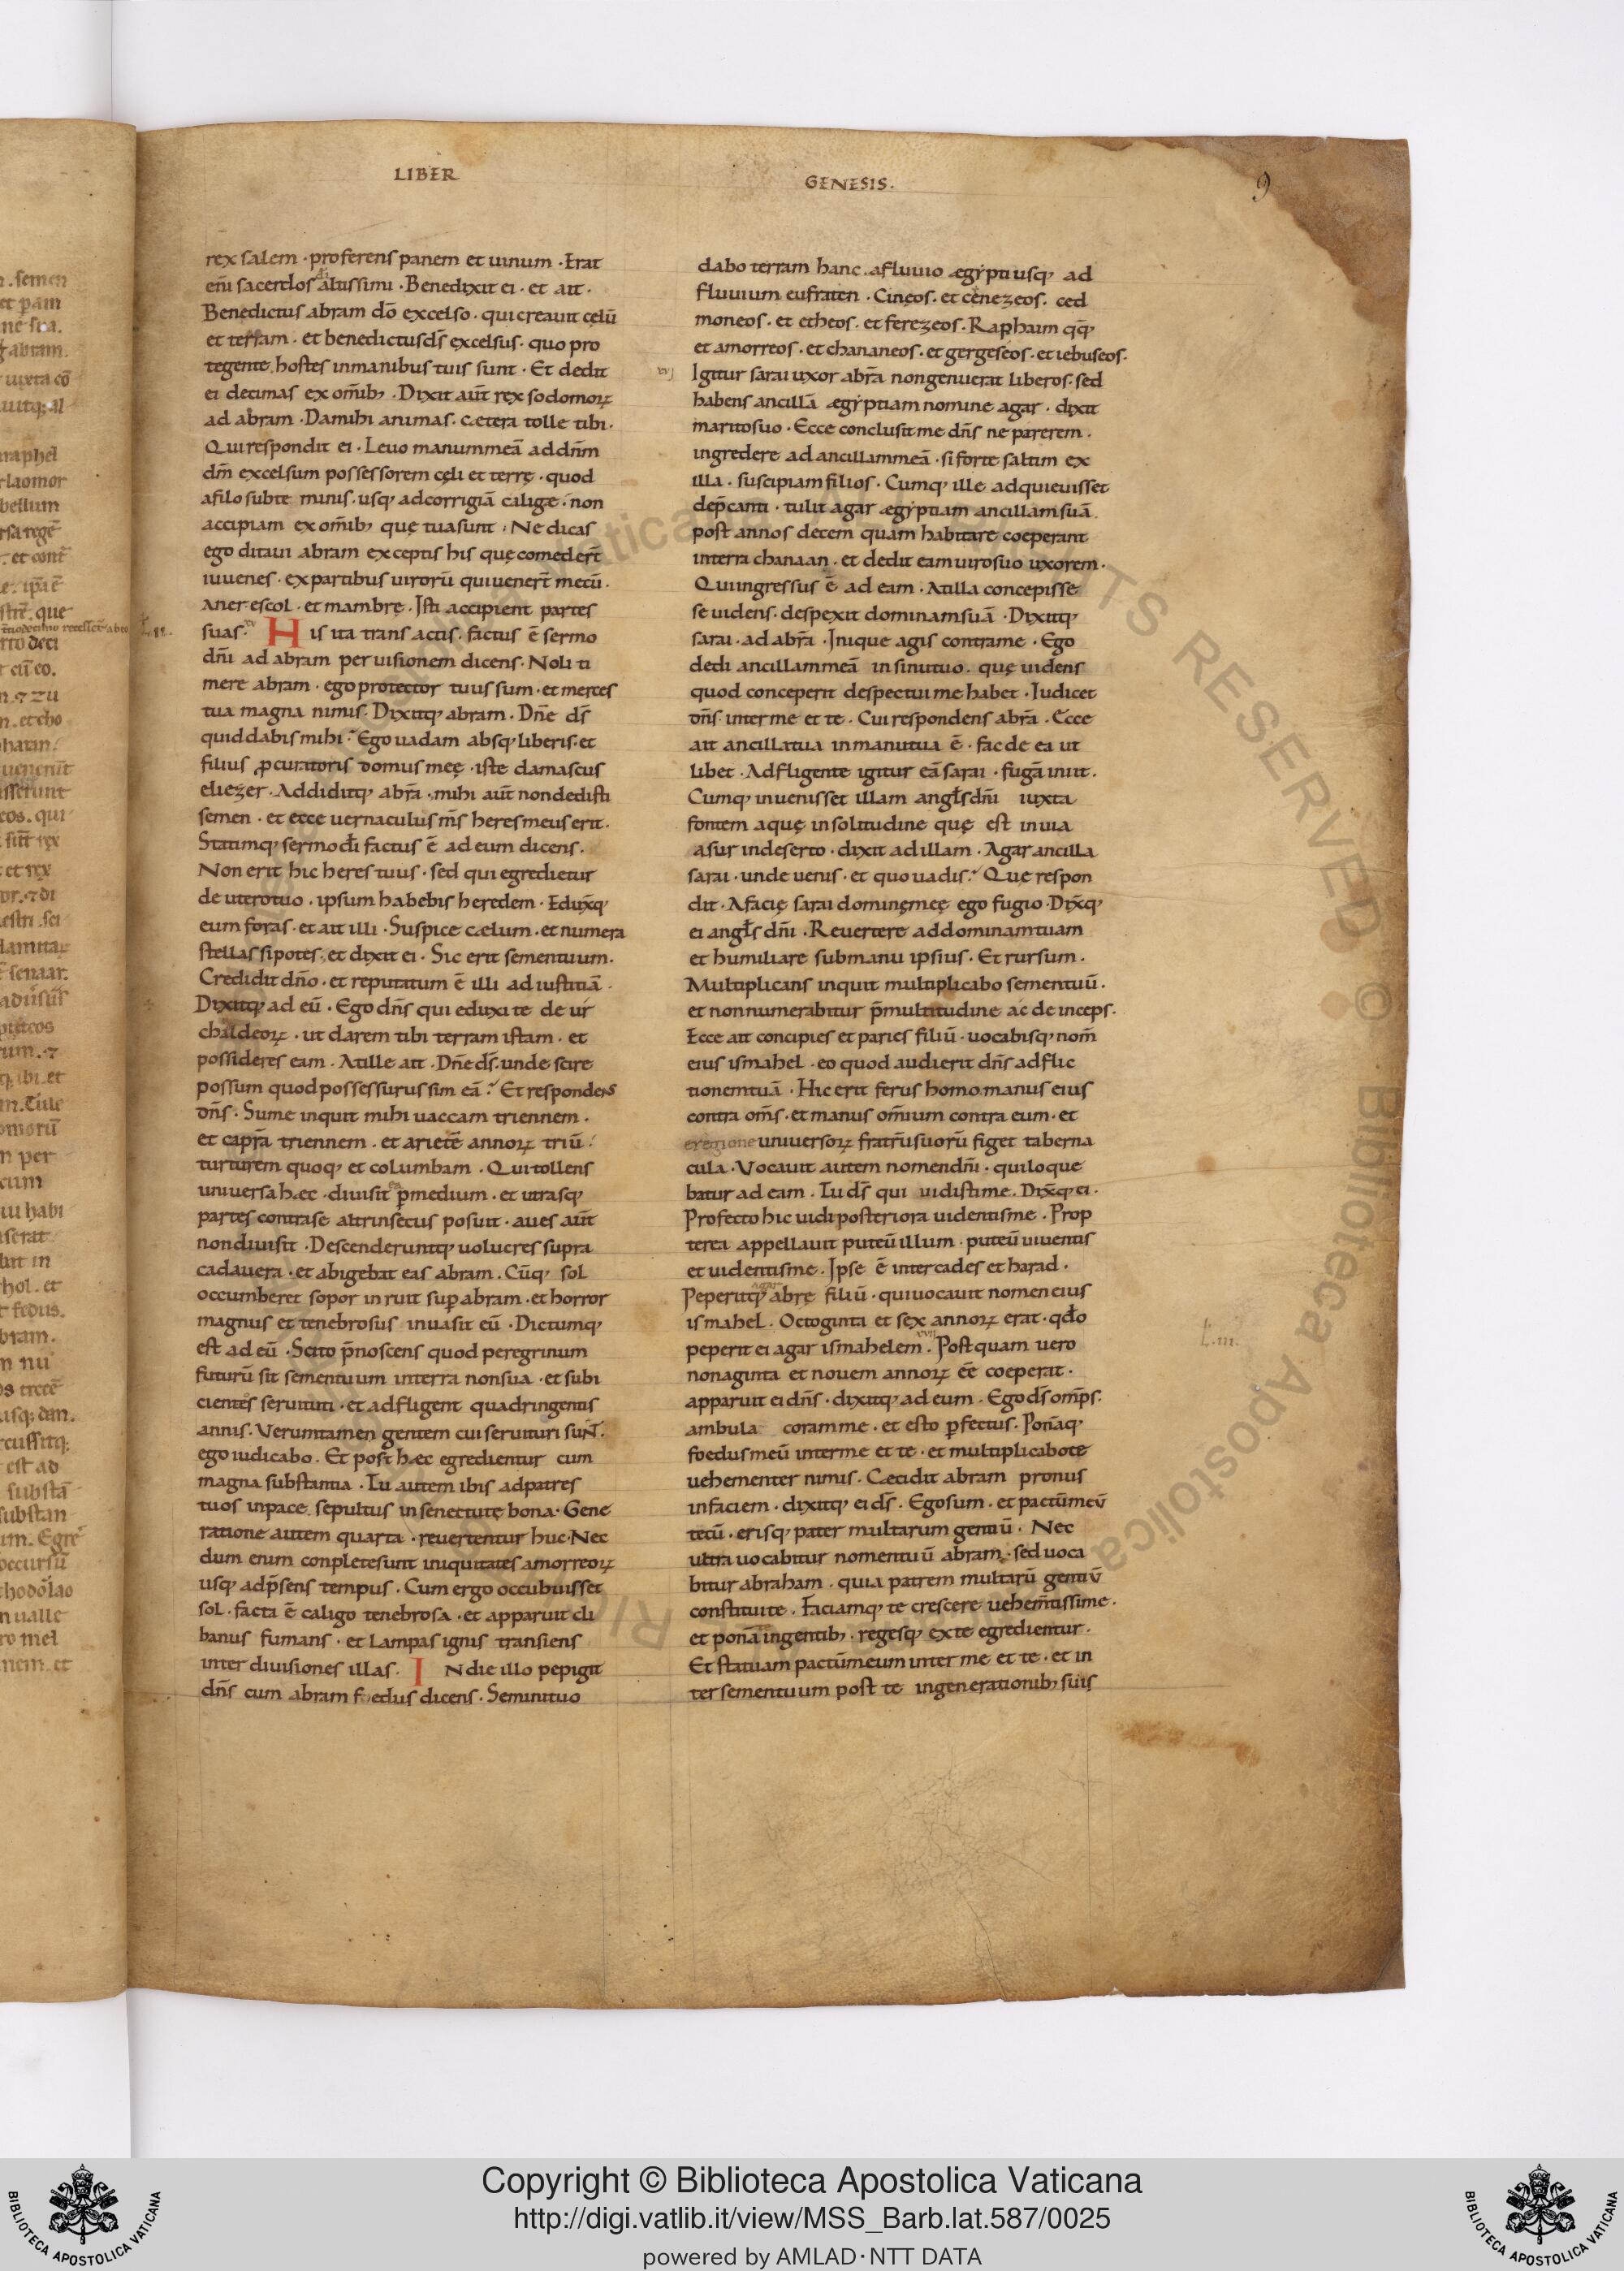 LIBER
GENESIS.
9
rex salem · proferens panem et uinum · Erat
eni͞ sacerdos d͞i altissimi · Benedixit ei · et ait ·
Benedictus abram do͞ excelso · qui creauit cęlu͞
et terram · et benedictus d͞s excelsus · quo pro
tegente hostes inmanibus tuis sunt · Et dedit
ei decimas ex om͞ib; · Dixit au͞t rex sodomoꝝ
ad abram · Damihi animas · cætera tolle tibi ·
Qui respondit ei · Leuo manummea͞ ad dn͞m
dm͞ excelsum possessorem cęli et terrę · quod
afilo subte minis · usq; adcorrigia͞ caligæ · non
accipiam ex om͞ib; quę tua sunt · Ne dicas
ego ditaui abram exceptis his quę comeder͞t
iuuenes · ex partibus uiroru͞ qui uener͞t mecu͞ ·
aner · escol · et mambrę · Isti accipient partes
suas · xv His ita transactis · factus e͞ sermo
dn͞i ad abram per uisionem dicens · Noli ti
mere abram · ego protector tuus sum · et merces
tua magna nimis · Dixitq; abram · Dn͞e d͞s
quid dabis mihi? Ego uadam absq; liberis · et
filius ꝓcuratoris domus meę · iste damascus
eliezer · Addiditq; abra͞ · mihi au͞t non dedisti
semen · et ecce uernaculus m͞s heres meus erit ·
Statimq; sermo d͞i factus e͞ ad eum dicens ·
Non erit hic heres tuus · sed qui egredietur
de uterotuo · ipsum habebis heredem · Edux͞q;
eum foras · et ait illi · Suspice cælum · et numera
stellas sipotes · et dixit ei · Sic erit sementuum ·
Credidit dn͞o · et reputatum e͞ illi ad iustitia͞ ·
Dixitq; ad eu͞ · Ego dn͞s qui eduxi te de ur
chaldeoꝝ · ut darem tibi terram istam · et
possideres eam · Atille ait · Dn͞e d͞s · unde scire
possum quod possessurus sim ea͞? Et respondens
dn͞s · Sume inquit mihi uaccam triennem ·
et capra͞ triennem · et ariete͞ annoꝝ triu͞ ·
turturem quoq; et columbam · Qui tollens
uniuersa hæc · diuisit ea ꝑmedium · et utrasq;
partes contrase altrinsecus posuit · aues au͞t
nondiuisit · Descenderuntq; uolucres supra
cadauera · et abigebat eas abram · Cu͞q; sol
occumberet sopor inruit suꝑ abram · et horror
magnus et tenebrosus inuasit eu͞ · Dictumq;
est ad eu͞ · Scito p͞noscens quod peregrinum
futuru͞ sit sementuum interra nonsua · et subi
cientes seruituti · et adfligent quadringentis
annis · Verumtamen gentem cui seruituri su͞NT ·
ego iudicabo · Et post hæc egredientur cum
magna substantia · Tu autem ibis adpatres
tuos inpace sepultus insenectutę bona · Gene
ratione autem quarta · reuertentur huc · Nec
dum enim conpletesunt iniquitates amorreoꝝ
usq; adp͞sens tempus · Cum ergo occubuisset
sol · facta e͞ caligo tenebrosa · et apparuit cli
banus fumans · et lampas ignis transiens
inter diuisiones illas · INdie illo pepigit
dn͞s cum abram foedus dicens · Seminituo
dabo terram hanc · afluuio ægypti usq; ad
fluuium eufraten · Cineos · et cenezeos · ced
moneos · et etheos · et ferezeos · Raphaim q͞q;
et amorreos · et chananeos · et gergeseos · et iebuseos ·
xvj Igitur sarai uxor abra͞ nongenuerat liberos · sed
habens ancilla͞ ægyptiam nomine agar · dixit
maritosuo · Ecce conclusit me dn͞s ne parerem ·
ingredere ad ancillammea͞ · si forte saltim ex
illa · suscipiam filios · Cumq; ille adquieuisset
dep͞canti · tulit agar ægyptiam ancillamsua͞
post annos decem quam habitare coeperant
interra chanaan · et dedit eam uirosuo uxorem ·
Qui ingressus e͞ ad eam · Atilla concepisse
se uidens · despexit dominamsua͞ · Dixitq;
sarai · ad abra͞ · Inique agis contrame · Ego
dedi ancillammea͞ in sinutuo · quę uidens
quod conceperit despectui me habet · Iudicet
dn͞s · inter me et te · Cui respondens abra͞ · Ecce
ait ancillatua inmanutua e͞ · fac de ea ut
libet · Adfligente igitur ea͞ sarai · fuga͞ iniit ·
Cumq; inuenisset illam angl͞s dn͞i iuxta
fontem aquę insolitudine quę est inuia
asur indeserto · dixit ad illam · Agar ancilla
sarai · unde uenis · et quo uadis? Quę respon
dit · Afacię sarai dominęmeę ego fugio · Dix͞q;
ei angl͞s dn͞i · Reuertere addominamtuam
et humiliare submanu ipsius · Et rursum ·
Multiplicans inquit multiplicabo sementuu͞ ·
et nonnumerabitur p͞multitudine ac deinceps ·
Ecce ait concipies et paries filiu͞ · uocabisq; nom͞
eius ismahel · eo quod audierit dn͞s adflic
tionemtua͞ · Hic erit ferus homo manus eius
contra om͞s · et manus om͞ium contra eum · et
eregione uniuersoꝝ fratru͞suoru͞ figet taberna
cula · Vocauit autem nomendn͞i · qui loque
batur ad eam · Tu d͞s qui uidistime · Dix͞q; ei ·
Profecto hic uidi posteriora uidentisme · Prop
terea appellauit puteu͞ illum · puteu͞ uiuentis
et uidentisme · Ipse e͞ inter cades et barad ·
Peperitq; agar abrę filiu͞ · qui uocauit nomen eius
ismahel · Octoginta et sex annoꝝ erat · qd͞o
peperit ei agar ismahelem · xvii Postquam uero
nonaginta et nouem annoꝝ e͞e coeperat ·
apparuit ei dn͞s · dixitq; ad eum · Ego d͞s om͞ps ·
ambula coramme · et esto ꝑfectus · Pona͞q;
foedusmeu͞ interme et te · et multiplicabote
uehementer nimis · Cæcidit abram pronus
infaciem · dixitq; ei d͞s · Egosum · et pactu͞meu͞
tecu͞ · erisq; pater multarum gentiu͞ · Nec
ultra uocabitur nomentuu͞ abram · sed uoca
bitur abraham · quia patrem multaru͞ gentiu͞
constituite · Faciamq; te crescere uehem͞tissime ·
et pona͞ te ingentib; · regesq; exte egredientur ·
Et statuam pactu͞meum inter me et te · et in
ter sementuum post te ingenerationib; suis
L.II.
L.III.
Copyright © Biblioteca Apostolica Vaticana
http://digi.vatlib.it/view/MSS_Barb.lat.587/0025
powered by AMLAD·NTT DATA
BIBLIOTECA APOSTOLICA VATICANA
BIBLIOTECA APOSTOLICA VATICANA